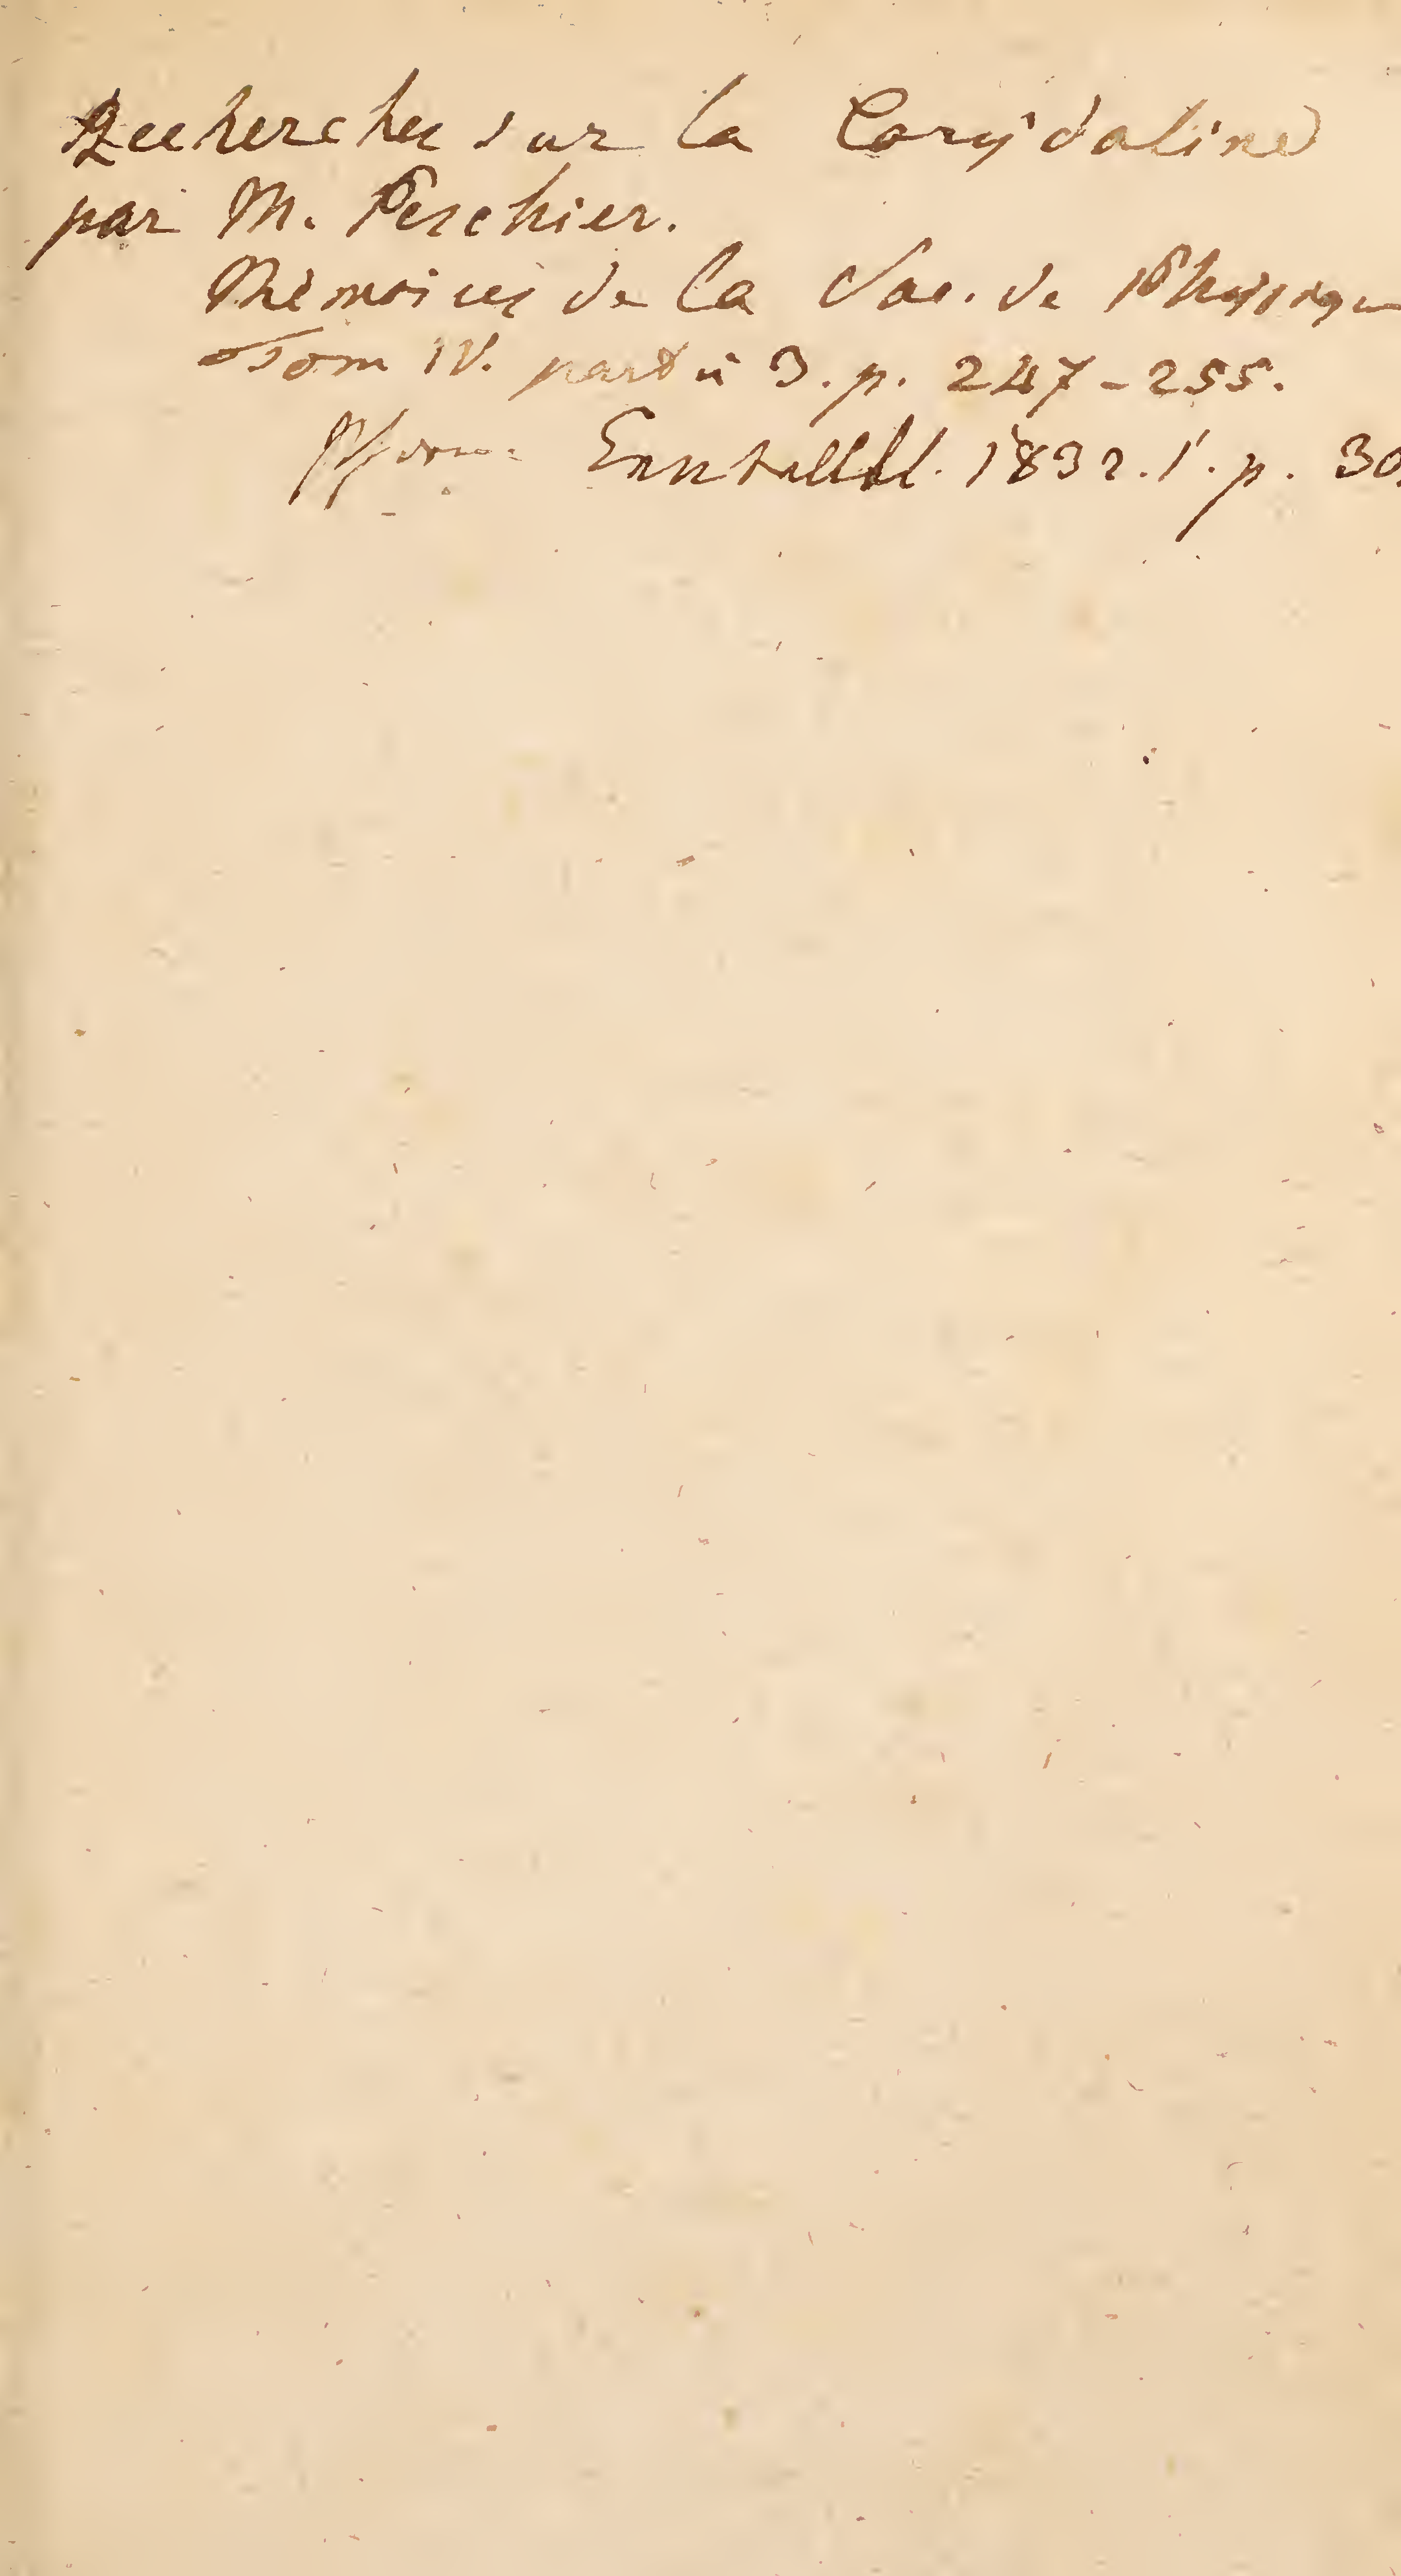 Recherches sur la Corydaline
par M. Peschier.
Mémoires de la Soc. de Physique
Tom IV. partie 3. p. 247-255.
Pharm. Centralbl. 1832. 1. p. 30